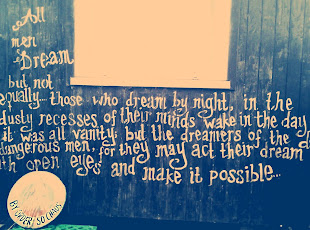 All
men
Dream
but not
equally... those who dream by night, in the
dusty recesses of their minds, wake in the day
it was all vanity; but the dreamers of the d
dangerous men, for they may act their dream
ith open eyes, and make it possible...
BY ORDER, SO CHAOS